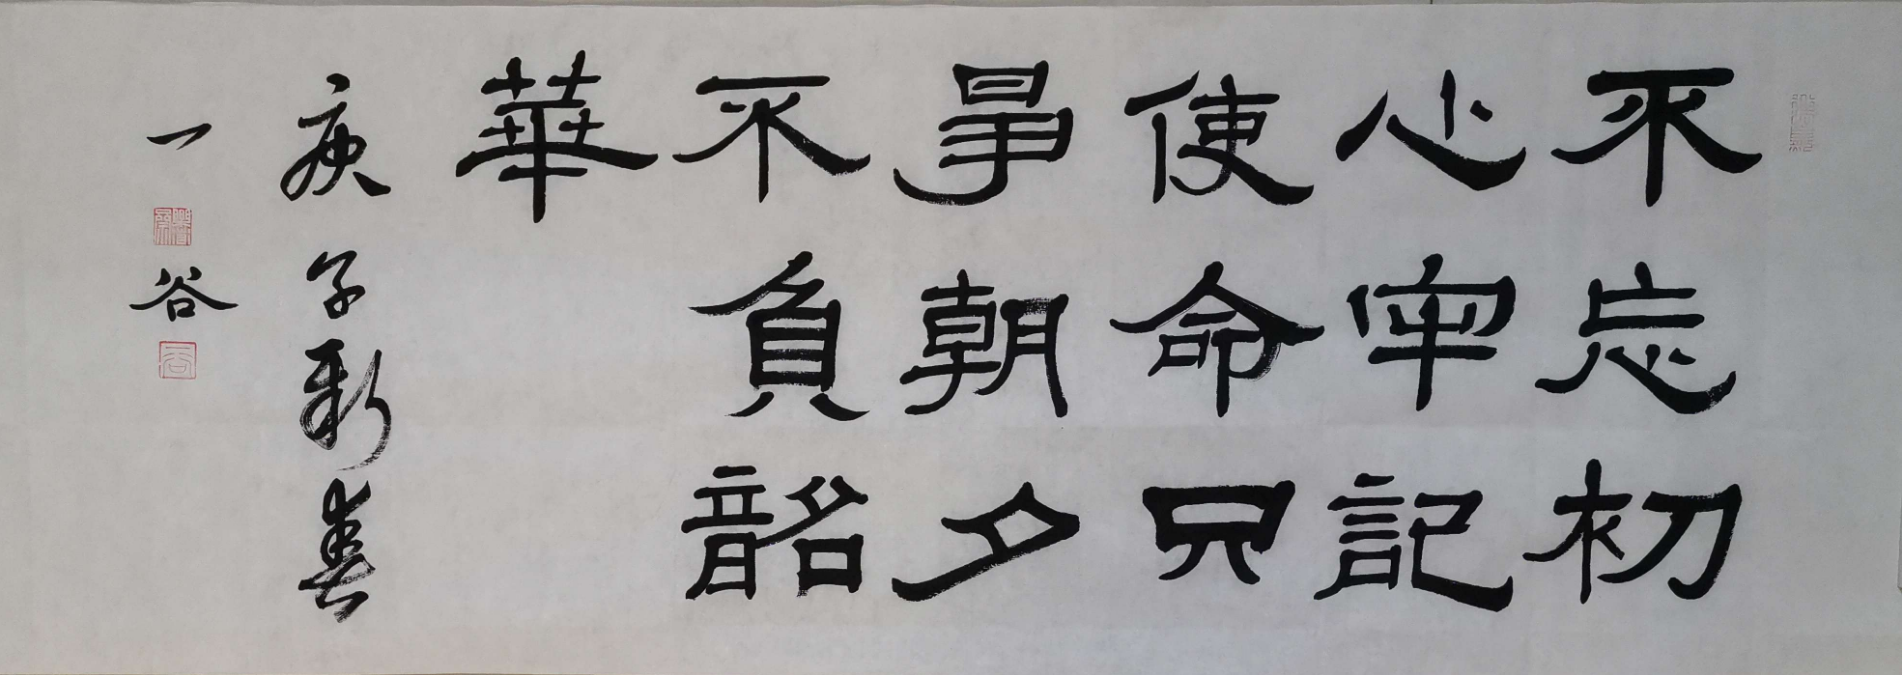 不忘初
心牢記
使命只
爭朝夕
不負韶
華
庚子新春
一谷